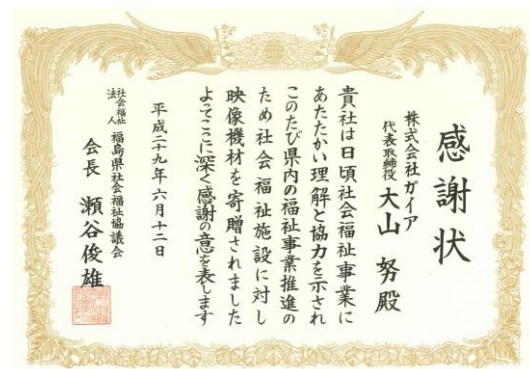 感謝状
株式会社ガイア
代表取締役 大山 努殿
貴社は日頃社会福祉事業に
あたたかい理解と協力を示され
このたび県内の福祉事業推進の
ため社会福祉施設に対し
映像機材を寄贈されました
よってここに深く感謝の意を表します
平成二十九年六月十二日
社会福祉法人 福島県社会福祉協議会
会長 瀬谷俊雄